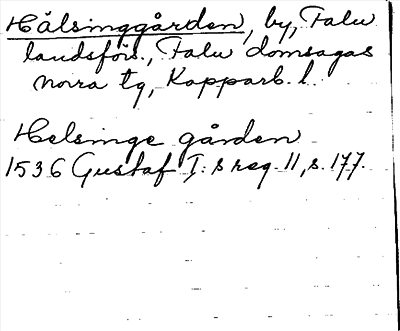 Hälsinggården, by, Falu
landsförs., Falu domsagas
norra tg, Kopparb. l.
Helsinge gården
1536 Gustaf I:s reg. 11, s. 177.